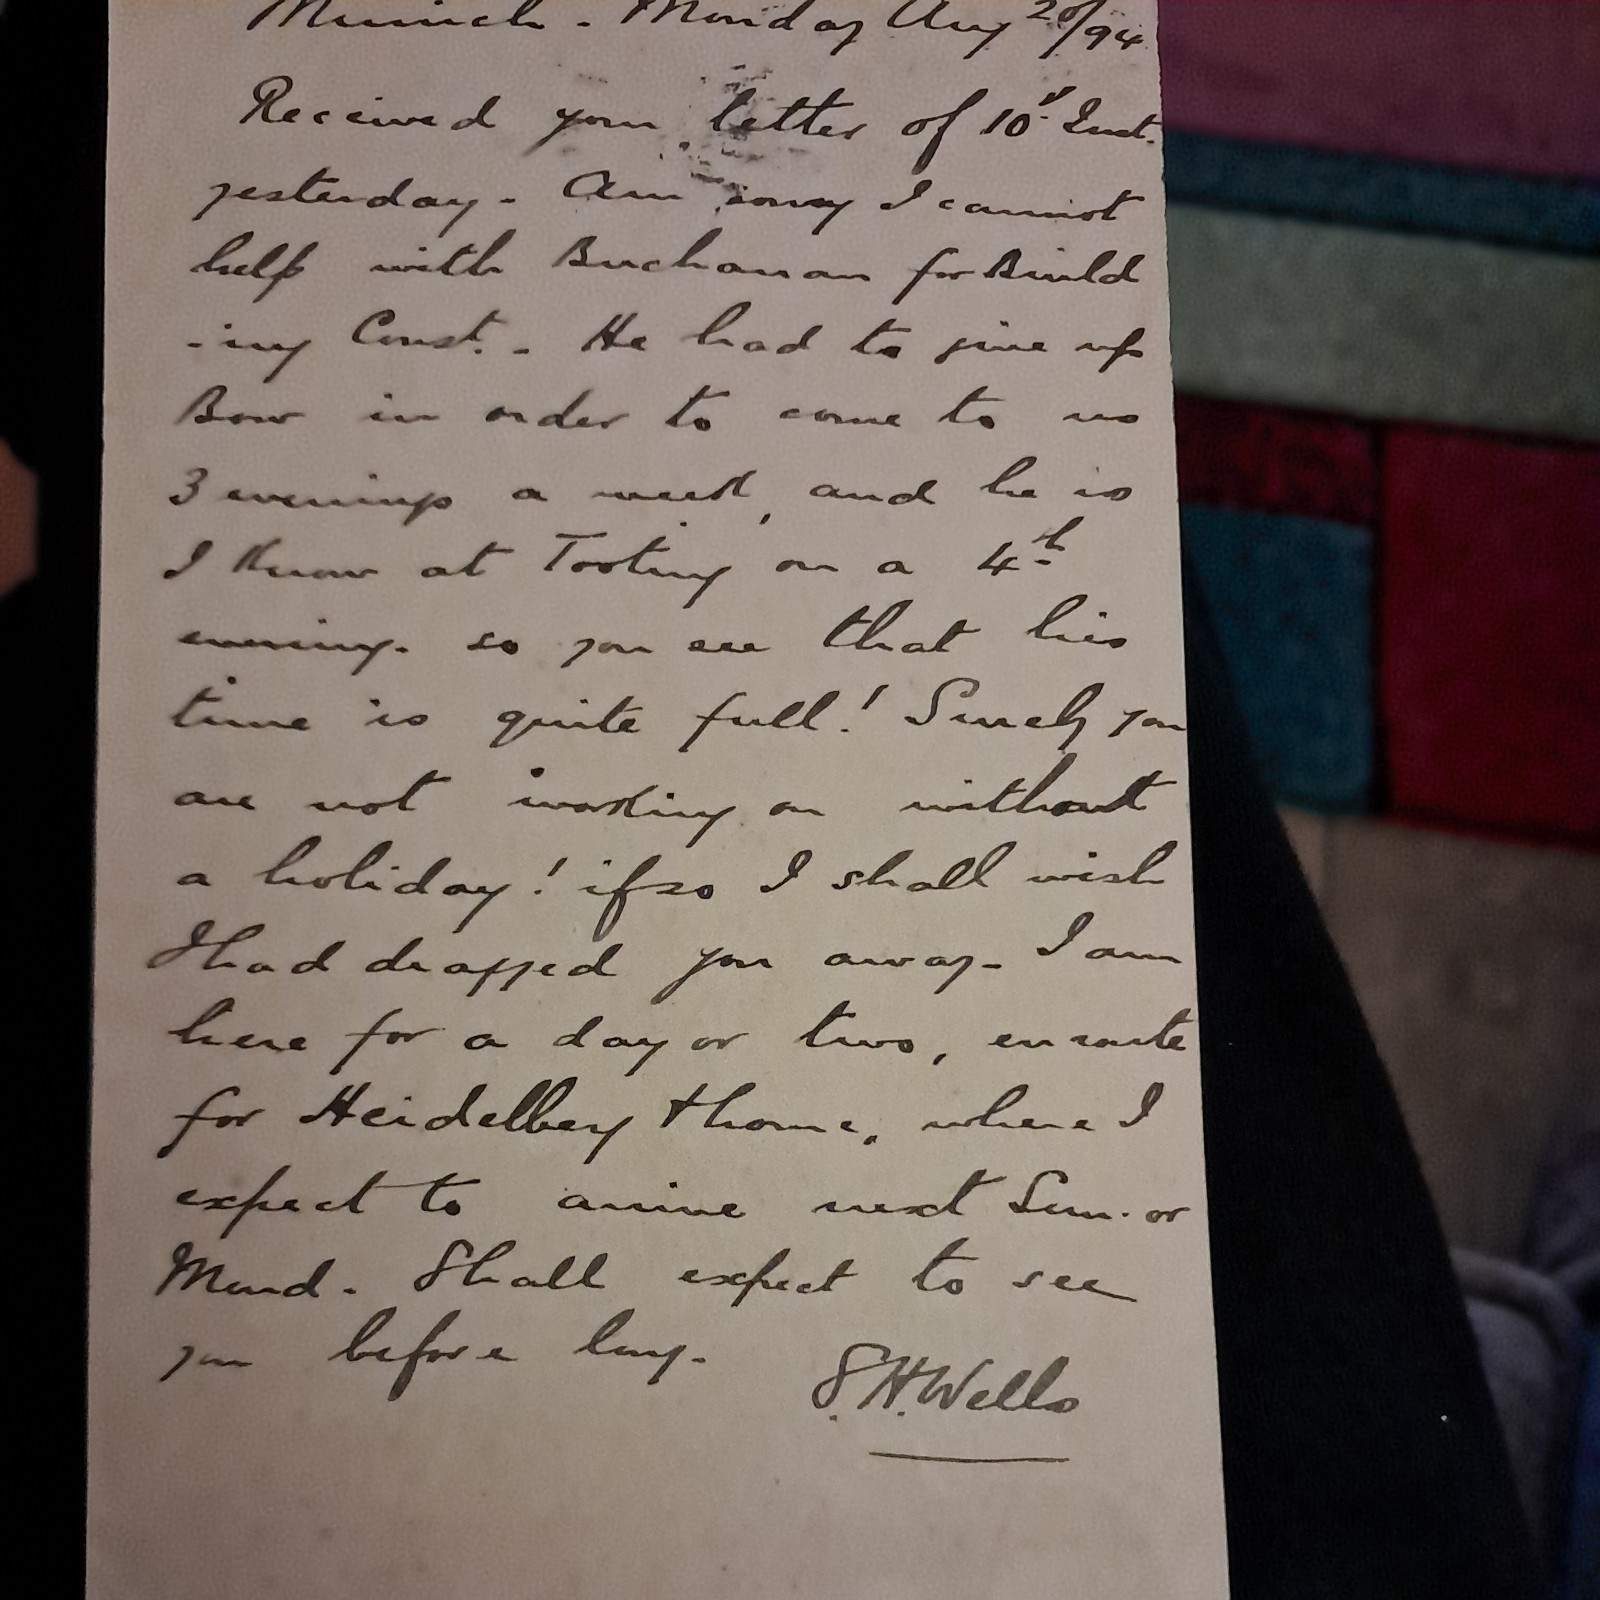 Munich - Monday Aug 20/94
Received your letter of 10th Inst.
yesterday - Am sorry I cannot
help with Buchanan for Build
-ing Const. - He had to give up
Bow in order to come to us
3 evenings a week, and he is
I know at Tooting on a 4th
evening. so you see that his
time is quite full! Surely you
are not working on without
a holiday! if so I shall wish
I had dragged you away - I am
here for a day or two, en route
for Heidelberg & home, where I
expect to arrive next Sun. or
Mond. Shall expect to see
you before long.
S.H. Wells